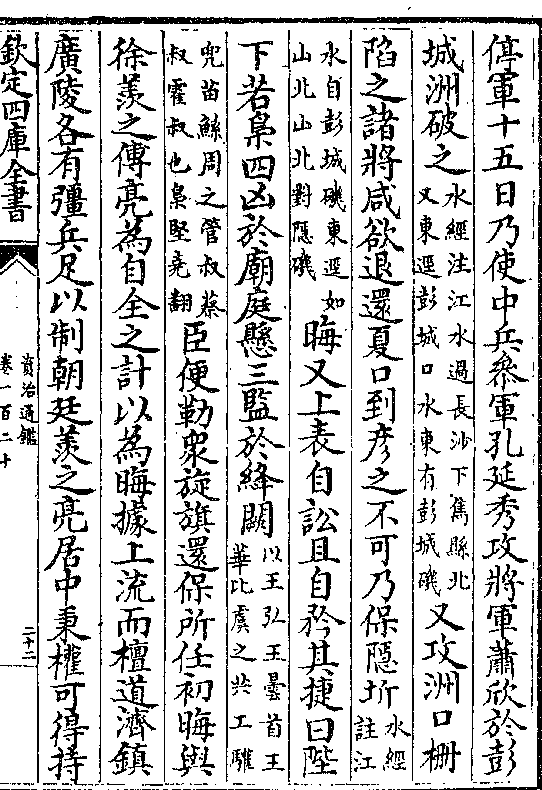 停軍十五日乃使中兵參軍孔延秀攻將軍蕭欣於彭
城洲破之水經注江水過長沙下雋縣北又東逕彭城口水東有彭城磯又攻洲口柵
陷之諸將咸欲退還夏口到彥之不可乃保隱圻水經註江
水自彭城磯東逕如山北山北對隱磯晦又上表自訟且自矜其捷曰陛
下若梟四凶於廟庭懸三監於絳闕以王弘王曇首王華比虞之共工驩
兜苗鯀周之管叔蔡叔霍叔也梟堅堯翻臣便勒衆旋旗還保所任初晦與
徐羨之傅亮為自全之計以為晦據上流而檀道濟鎮
廣陵各有彊兵足以制朝廷羨之亮居中秉權可得持
欽定四庫全書
資治通鑑
卷一百二十
二十二